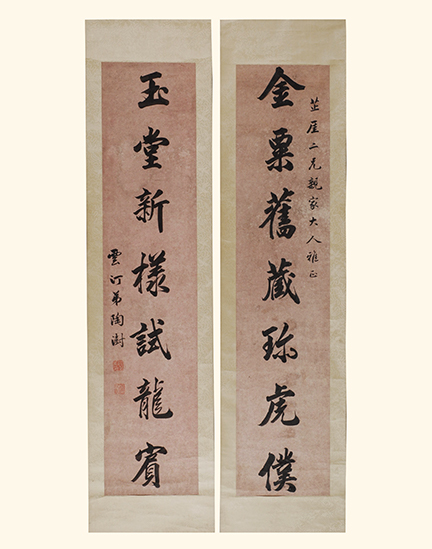 芷厓二兄親家大人雅正
金粟舊藏珎虎僕
玉堂新様試龍賓
雲汀弟陶澍